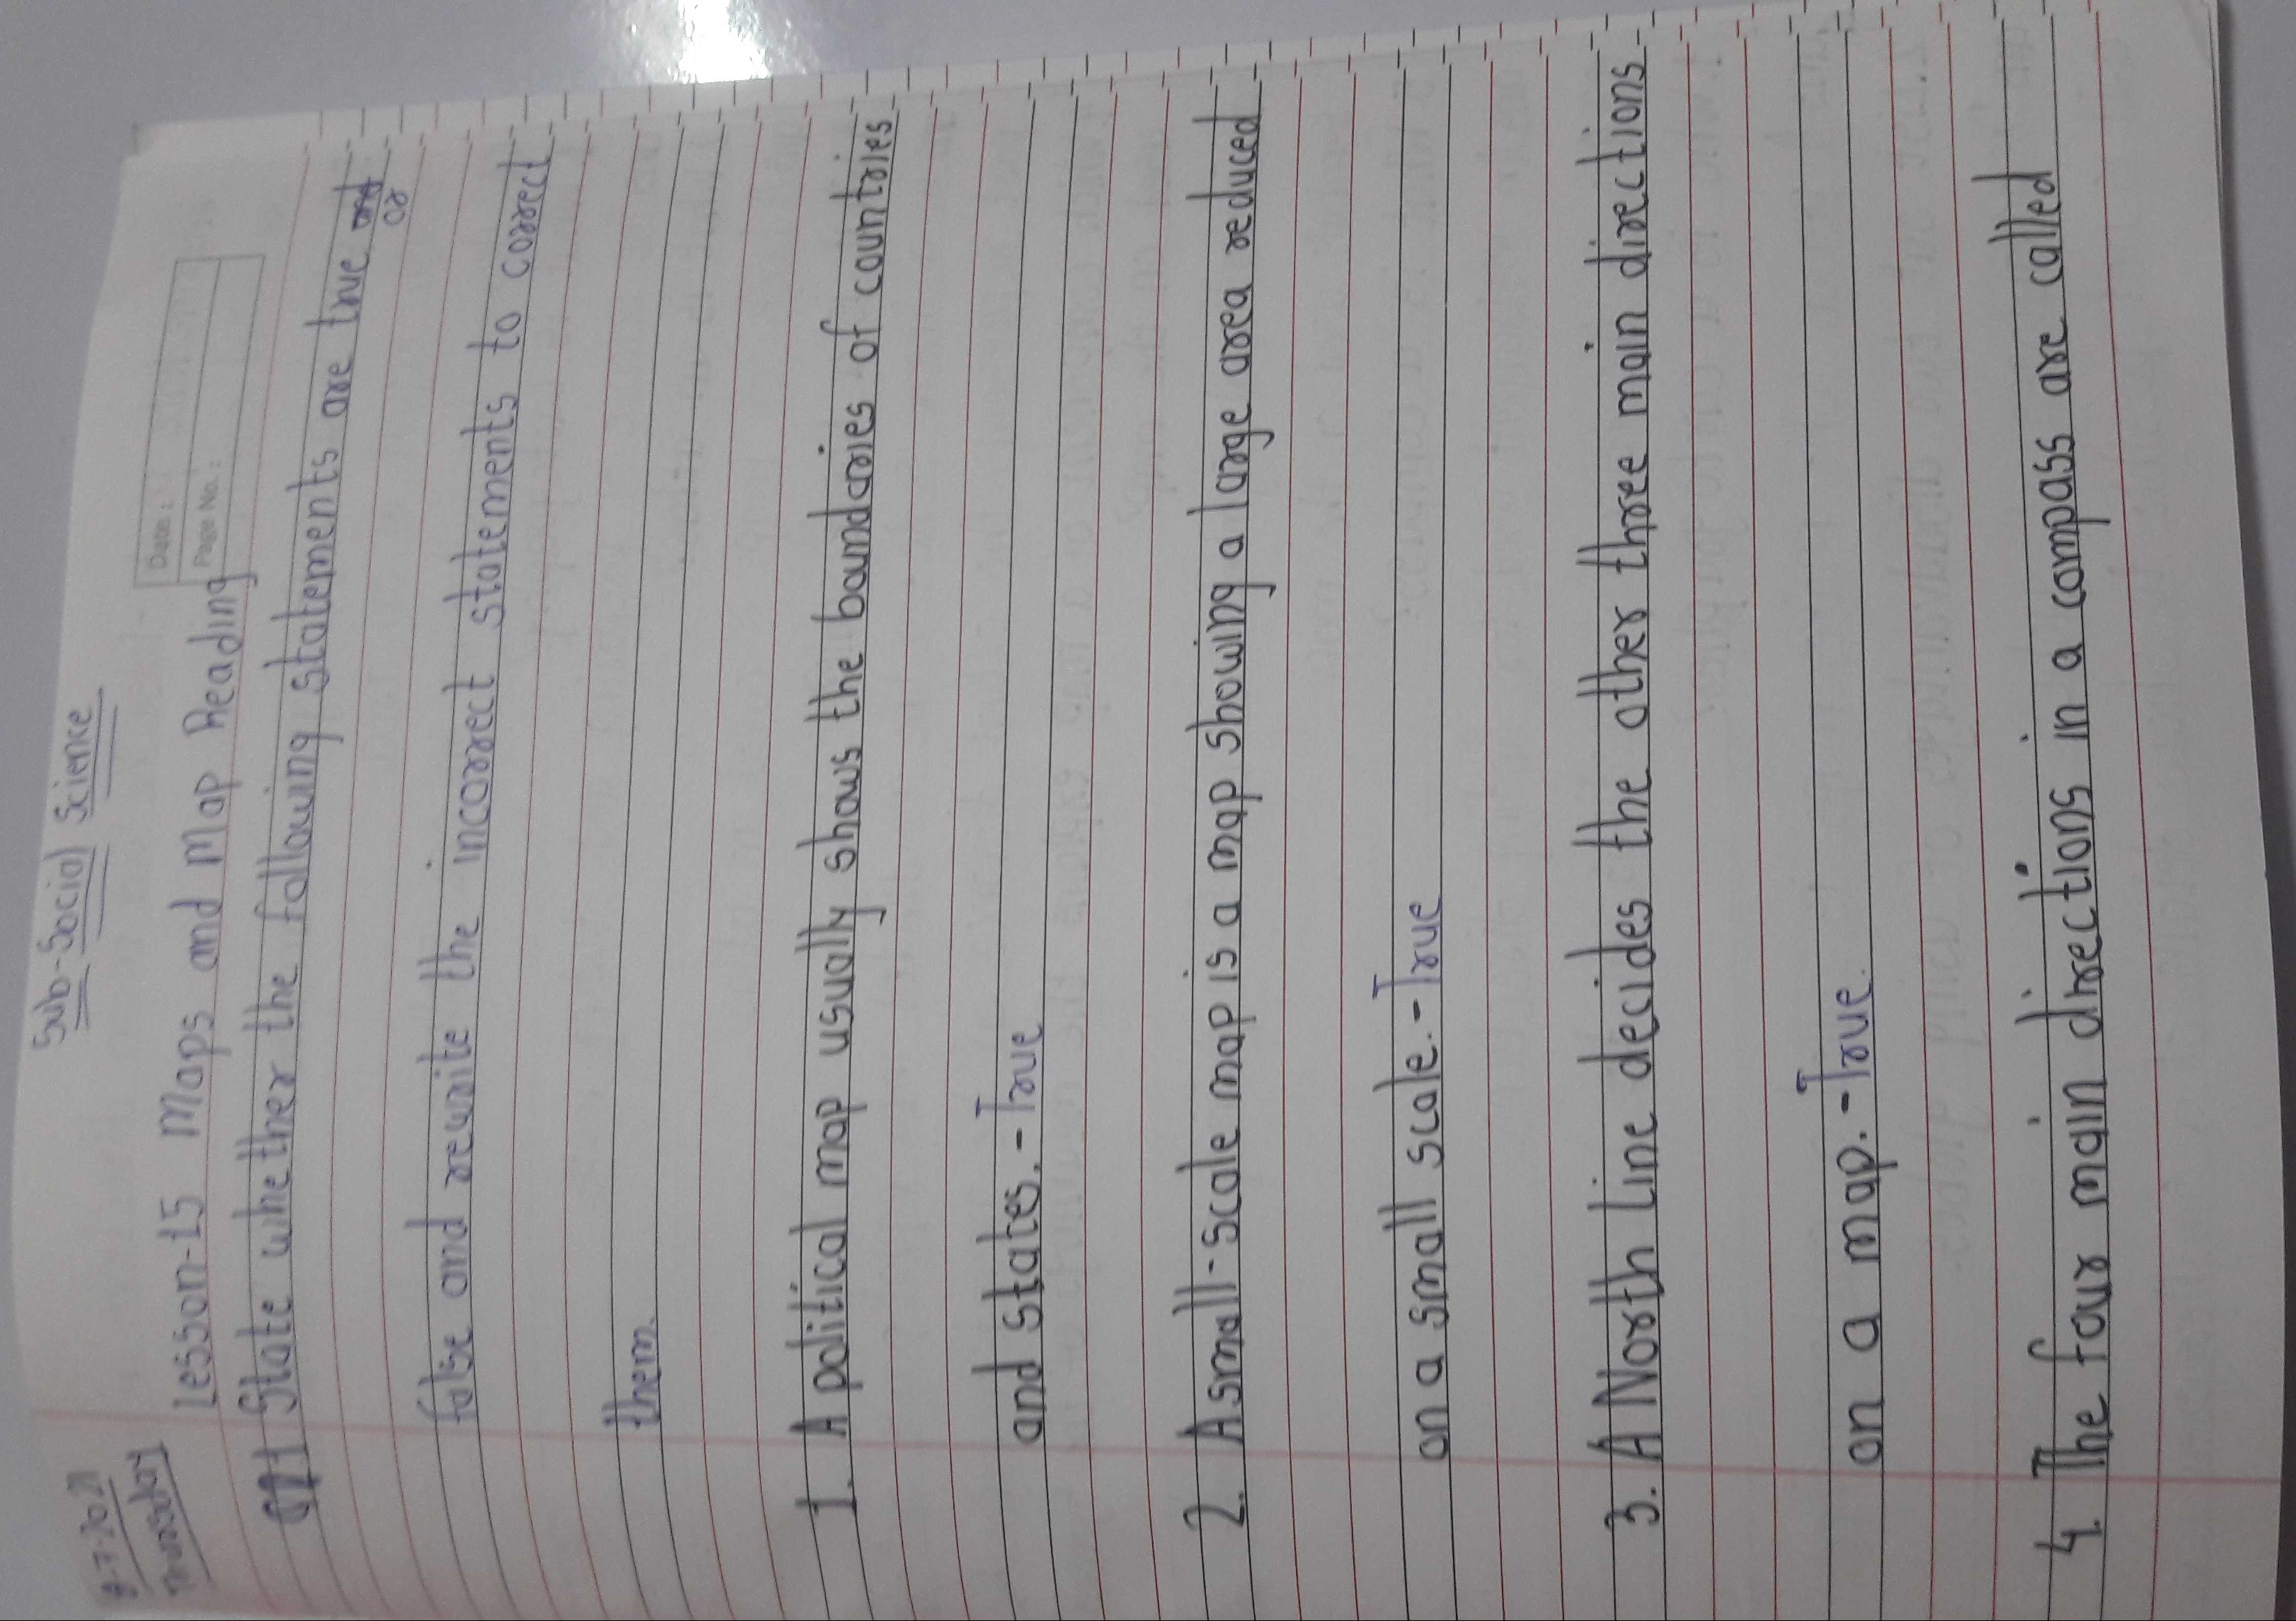 8-7-2021
Thursday
Sub-Social Science
Date:
Page No.:
Lesson-15 Maps and Map Reading
Q1 State whether the following statements are true or
false and rewrite the incorrect statements to correct
them.
1. A political map usually shows the boundaries of countries
and states. - True
2. A small-scale map is a map showing a large area reduced
on a small scale. - True
3. A North Line decides the other three main directions
on a map. - True.
4. The four main directions in a compass are called